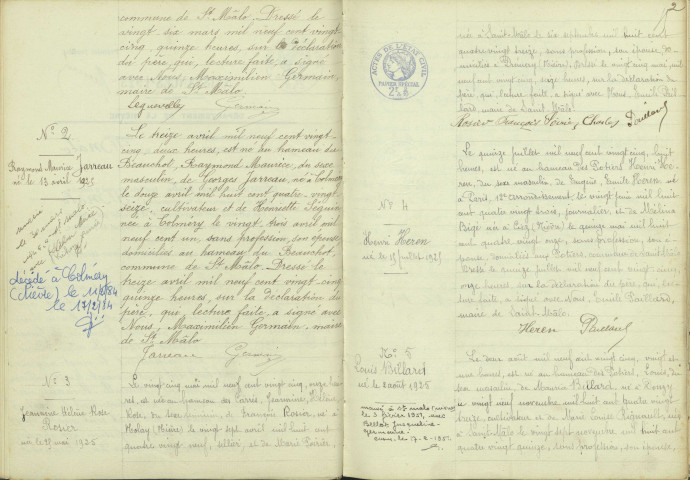 commune de St Mâlo. Dressé le
vingt six mars mil neuf cent vingt
cinq, quinze heures, sur la déclaration
du père, qui, lecture faite, a signé
avec Nous, Maximilien Germain,
maire de St Mâlo.
Germain
N° 2
Raymond Maurice Jarreau
né le 13 avril 1925
décédé à Colméry
(Nièvre) le
le 17/2/84
Le treize avril mil neuf cent vingt
cinq, deux heures, est né au hameau du
Beauchot, Raymond Maurice, du sexe
masculin, de Georges Jarreau, né à Colméry
le douze avril mil huit cent quatre vingt
seize, cultivateur et de Henriette Seguin
née à Colméry le vingt trois avril mil
neuf cent un, sans profession, son épouse
domiciliés au hameau du Beauchot,
commune de St Mâlo. Dressé le
treize avril mil neuf cent vingt cinq,
quinze heures, sur la déclaration du
père, qui, lecture faite, a signé avec
Nous, Maximilien Germain, maire
de St Mâlo
Jarreau Germain
N° 3
Jeannine Hélène Rose
Rosier
née le mai 1925
Le vingt mai mil neuf cent vingt cinq, onze heu-
res, est née au hameau des Jeannine, Hélène
Rose, du sexe féminin, de François Rosier, né à
(Nièvre) le vingt sept avril mil huit cent
quatre vingt neuf, sellier, et de Marie
2
née à Saint-Mâlo le six septembre mil huit cent
quatre vingt treize, sans profession, son épouse, do-
miciliés à (Nièvre). Dressé le vingt cinq mai mil
neuf cent vingt cinq, seize heures, sur la déclaration du
père, qui, lecture faite, a signé avec Nous, Emile Pail-
lard, maire de Saint-Mâlo.
Rosier François Charles Paillard
ACTES DE L'ÉTAT CIVIL
PAPIER SPÉCIAL
N° 4
Henri Heren
né le 15 juillet 1925
Le quinze juillet mil neuf cent vingt cinq, huit
heures, est né au hameau des Potiers Henri He-
ren, du sexe masculin, de Eugène, Emile Heren né
à Paris, 12e arrondissement, le vingt juin mil huit
cent quatre vingt trois, journalier, et de
Bigé née à (Nièvre) le quinze mai mil huit
cent quatre vingt onze, sans profession, son é-
pouse, domiciliés aux Potiers, commune de Saint-Mâlo
Dressé le quinze juillet mil neuf cent vingt cinq,
onze heures, sur la déclaration du père, qui, lec-
ture faite, a signé avec Nous, Emile Paillard,
maire de Saint-Mâlo.
Heren Paillard
N° 5
Louis Billard
né le 2 août 1925
marié à St Malo (Nièvre)
le 3 février 1951 avec
Jacqueline
Germaine
Le deux août mil neuf cent vingt cinq, vingt et
une heures, est né au hameau des Potiers, Louis, du
sexe masculin, de Maurice Billard, né à
vingt neuf novembre mil huit cent quatre vingt
treize, cultivateur et de Marie Louise née
à Saint-Mâlo le vingt sept novembre mil huit cent
quatre vingt quinze, sans profession, son épouse,